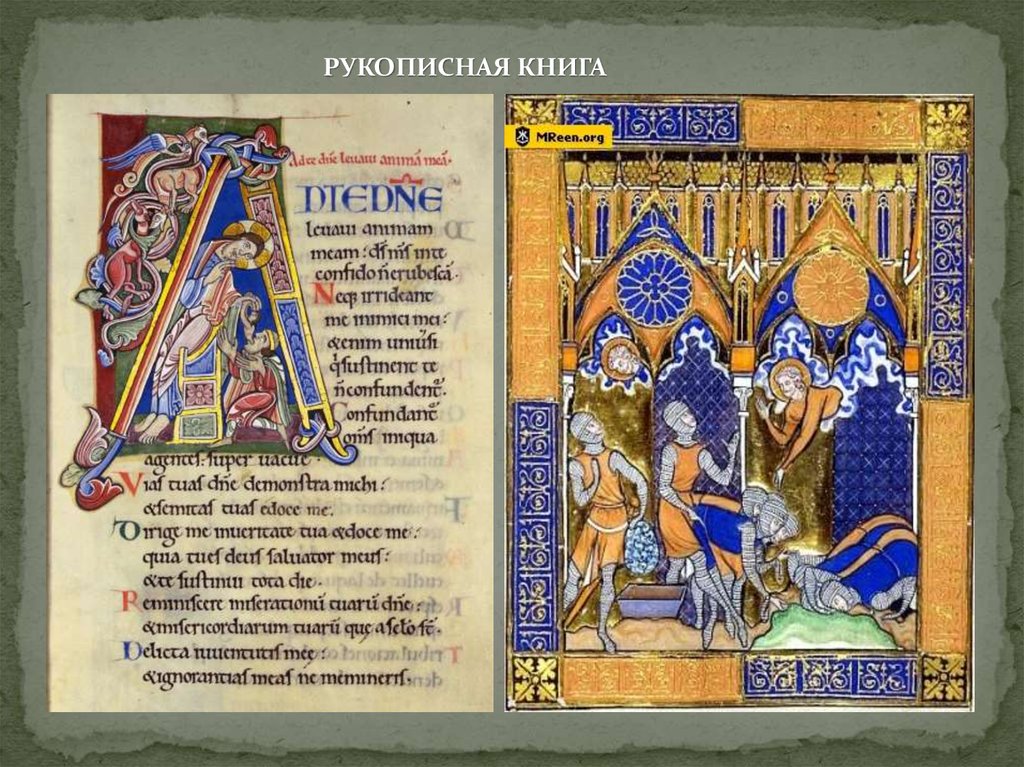 РУКОПИСНАЯ КНИГА
Ad te dn̄e leuaui animā meā.
DIEDN̄E
leuaui animam
meam: ds̄ ms̄ inte
confido n̄ erubescā.
Neq; irrideant
me inimici mei:
&enim uniūsi
qͥ sustinent te
n̄ confundent̄.
Confundant̄
om̄s iniqua
agentes: super uacue.
Vias tuas dn̄e demonstra michi:
&semitas tuas edoce me.
Dirige me inueritate tua &doce me:
quia tues deus saluator meus:
&te sustinui tota die.
Reminiscere miserationū tuarū dn̄e:
&misericordiarum tuarū que aselo st̄.
Delicta iuuentutis mee:
&ignorantias meas ne memineris.
MReen.org